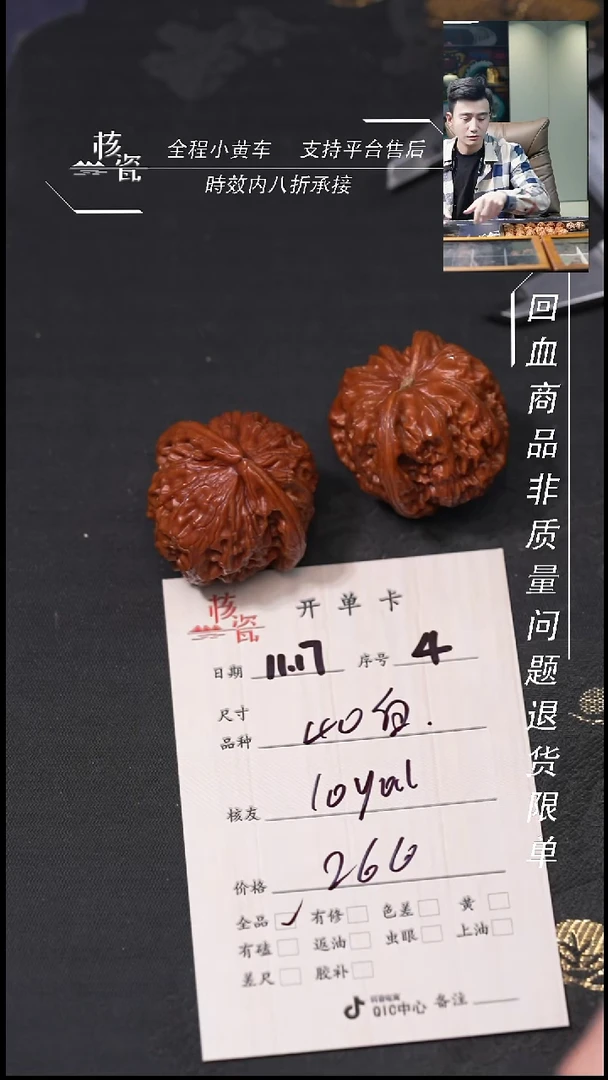 核瓷
全程小黄车 支持平台售后
時效内八折承接
回血商品非质量问题退货限单
核瓷
开单卡
日期 11.17 序号 4
尺寸
品种 40白.
核友 loyal
价格 266
全品 ✓ 有修 色差 黄
有磕 返油 虫眼 上油
差尺 胶补
QIC中心 备注